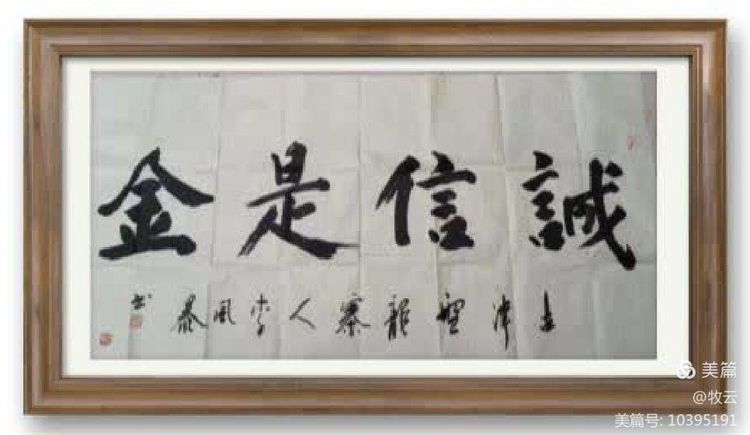 誠信是金
古津聖龍寨人李風暴書
美篇
@牧云
美篇号: 10395191